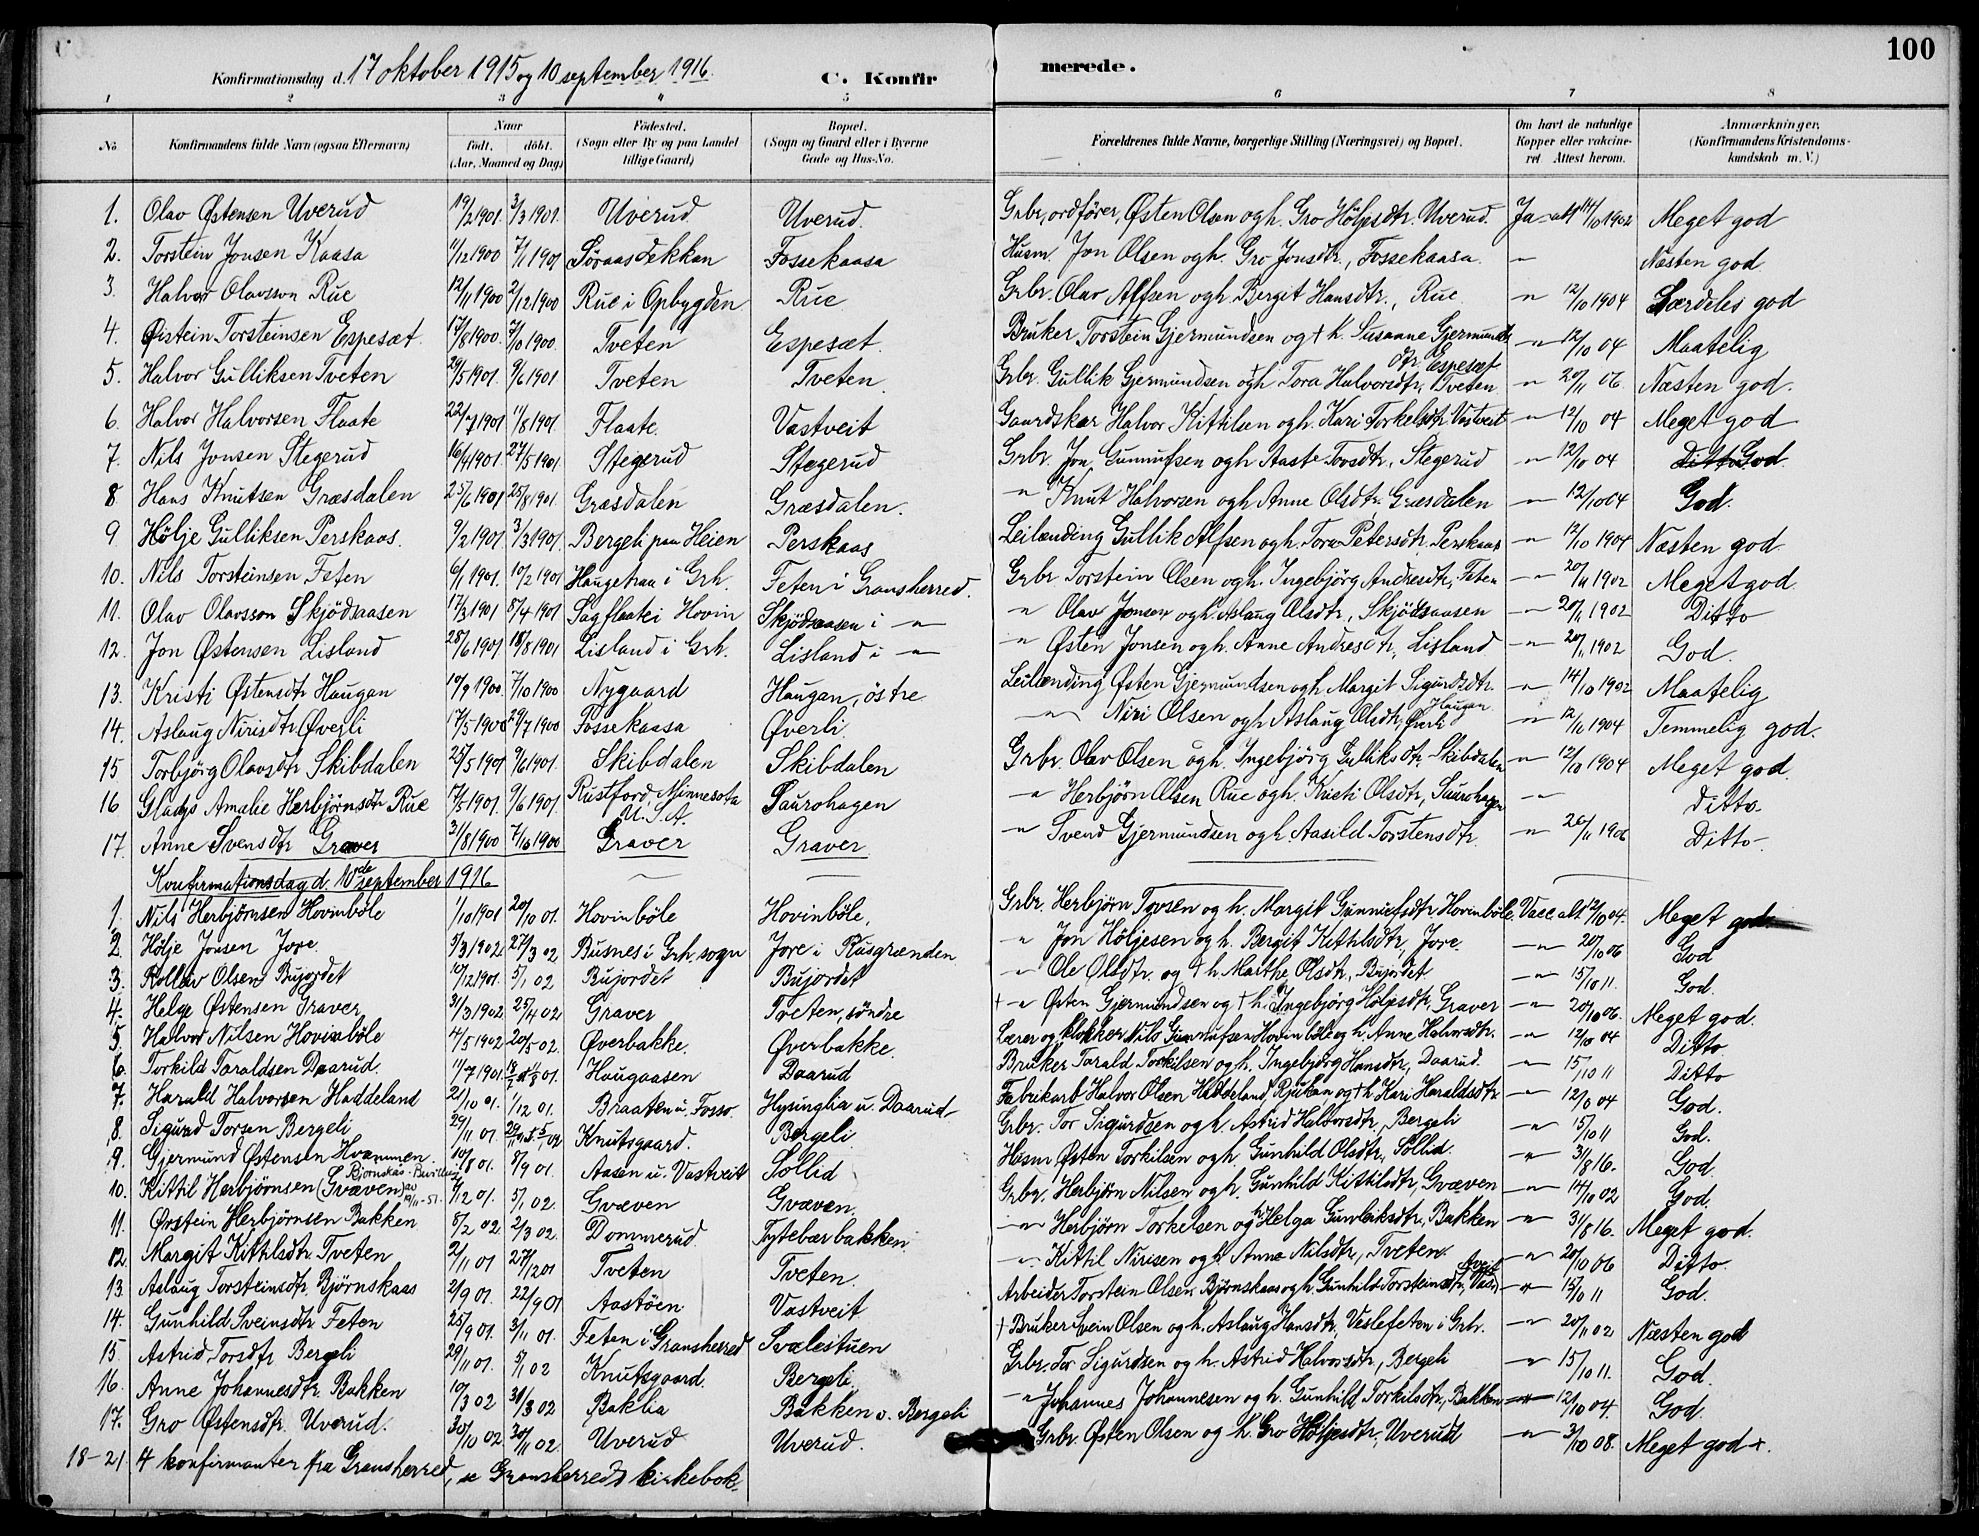 100
Konfirmationsdag d. 17 oktober 1915 og 10 september 1916. C. Konfirmerede.
1 2 3 4 5 6 7 8
No Konfirmandens fulde Navn (ogsaa Efternavn) Naar født. døbt. (Aar, Maaned og Dag) Fødested. (Sogn eller By og paa Landet tillige Gaard) Bopæl. (Sogn og Gaard eller i Byerne Gade og Hus-No. Forældrenes fulde Navne, borgerlige Stilling (Næringsvei) og Bopæl. Om havt de naturlige Kopper eller vakcineret Attest herom. Anmærkninger. (Konfirmandens Kristendomskundskab m. V.)
1. Olav Østensen Uverud 19/2 1901. 3/3 1901. Uverud. Uverud. Grbr, ordfører, Østen Olsen og h. Gro Höljesdtr. Uverud. Ja att 14/10 1902 Meget god
2. Torstein Jonsen Kaasa 11/12 1900 7/1 1901 Söraasdekkan Fossekaasa Husm. Jon Olsen og h. Gro Jonsdtr., Fossekaasa. — Næsten god
3. Halvor Olavsson Rue 12/11 1900 2/12 1900 Rue i Opbygden Rue Grbr. Olav Alfsen og h. Bergit Hansdtr., Rue. -"- 12/10 1904 Særdeles god
4. Øistein Torsteinsen Espesæt. 17/8 1900. 7/10 1900. Tveten Espesæt. Bruker Torstein Gjermundsen og † h. Susanne Gjermundsdtr. Espesæt -"- 12/10 04 Maatelig
5. Halvor Gulliksen Tveten 29/5 1901. 9/6 1901 Tveten Tveten. Grbr. Gullik Gjermundsen og h. Tora Halvorsdtr., Tveten -"- 20/11 06 Næsten god.
6. Halvor Halvorsen Flaate 22/7 1901 11/8 1901. Flaate. Vastveit Gaardskar Halvor Kithilsen og h. Kari Torkelsdtr. Vastveit -"- 12/10 04 Meget god
7. Nils Jonsen Stegerud 16/4 1901. 27/5 1901. Stegerud Stegerud Grbr. Jon Gunnufsen og h. Aaste Tovsdtr., Stegerud -"- 12/10 04 Ditto God.
8 Hans Knutsen Græsdalen 25/6 1901 25/8 1901. Græsdalen Græsdalen. -"- Knut Halvorsen og h. Anne Olsdtr. Græsdalen -"- 12/10 04 God.
9 Hölje Gulliksen Perskaas. 9/2 1901. 3/3 1901. Bergeli paa Heien Perskaas Leilænding Gullik Alfsen og h. Tora Petersdtr. Perskaas -"- 12/10 1904 Næsten god.
10. Nils Torsteinsen Feten 6/1 1901. 10/2 1901 Haugehau i Grh. Feten i Gransherred. Grbr Torstein Olsen og h. Ingebjörg Andresdtr, Feten -"- 20/11 1902 Meget god.
11. Olav Olavsson Skjödsaasen 17/3 1901 8/4 1901 Sagflaate i Hovin Skjödsaasen i -"- -"- Olav Jonsen og h. Aslaug Olsdtr., Skjödsaasen -"- 20/11 1902 Ditto
12. Jon Østensen Lisland 28/6 1901 18/8 1901 Lisland i Grh. Lisland i -"- -"- Østen Jonsen og h. Anne Andresdtr., Lisland -"- 20/11 1902 God.
13. Kristi Østensdtr. Haugan 10/9 1900. 7/10 1900 Nygaard Haugan, östre Leilænding Østen Gjermundsen og h Margit Sigurdsdtr. Haugan -"- 14/10 1902 Maatelig
14. Aslaug Nirisdtr. Øverli 17/5 1900 29/7 1900 Fossekaasa Øverli. -"- Niri Olsen og h Aslaug Olsdtr, Øverli -"- 12/11 1904 Temmelig god.
15 Torbjörg Olavsdtr Skibdalen 25/5 1901 9/6 1901. Skibdalen Skibdalen Grbr. Olav Olsen og h. Ingebjörg Gulliksdtr. Skibdalen -"- 12/10 1904 Meget god.
16 Gladys Amalie Herbjörnsdtr Rue 7/5 1901. 9/6 1901. Rustford, Minnesota U.S.A. Saurohagen -"- Herbjörn Olsen Rue og h. Kristi Olsdtr, Saurohagen -"- Ditto.
17. Anne Svensdtr Graver 31/8 1900 7/10 1900 Graver Graver -"- Svend Gjermundsen og h. Aasild Torstensdtr. -"- 20/11 1906 Ditto.
Konfirmationsdag d. 10de september 1916
1. Nils Herbjörnsen Hovinböle 1/10 1901 20/10 01. Hovinböle Hovinböle. Grbr. Herbjörn Tovsen og h. Margit Gunnufsdtr. Hovinböle. Vacc. att. 12/10 04. Meget god.
2. Hölje Jonsen Jore. 9/3 1902. 27/3 02 Busnes i Grh. sogn Jore i Rusgrænden -"- Jon Höljesen og h. Bergit Kithilsdtr, Jore. -"- 20/10 06 God
3. Rollev Olsen Bujordet 10/12 1901. 5/1 02 Bujordet Bujordet -"- Ole Olsdtr. og † h. Marthe Olsdtr., Bujordet -"- 15/10 11. God.
4. Helge Østensen Graver 31/3 1902. 25/4 02 Graver Tveten, söndre † -"- Østen Gjermundsen og † h. Ingebjörg Höljesdtr. Graver -"- 20/10 06. Meget god.
5. Halvor Nilsen Hovinböle 4/5 1902 20/5 02. Øverbakke. Øverbakke. Lærer og klokker Nils Gunnufsen Hovinböle og h. Anne Halvorsdtr. -"- 12/10 04 Ditto
6. Torkild Taraldsen Daarud. 11/7 1901. Haugaasen Daarud Bruker Tarald Torkilsen og h. Ingebjörg Hansdtr., Daarud. -"- 15/10 11 Ditto
7. Harald Halvorsen Haddeland 21/10 01. 1/12 01. Braaten u. Fosso Hysinglia u. Daarud Fabrikarb Halvor Olsen Haddeland, Rjukan og † h Kari Haraldsdtr -"- 12/10 04 God.
8. Sigurd Torsen Bergeli 29/11 01 Knutsgaard. Bergeli Grbr. Tor Sigurdsen og h. Astrid Halvorsdtr, Bergeli -"- 15/10 11 God.
9. Gjermund Østensen Hvammen. 10/8 01. 8/9 01. Aasen u. Vastveit Sollid Husm Østen Torkilsen og h Gunhild Olsdtr., Sollid. -"- 31/8 16. God.
10. Kittil Herbjörnsen (Gvæven) 4/12 01. 5/1 02. Gvæven Gvæven. Grbr. Herbjörn Nilsen og h. Gunhild Kittilsdtr, Gvæven -"- 14/10 02 God.
11. Ørstein Herbjörnsen Bakken 5/2 02. 2/3 02. Dommerud. Tytebærbakken. -"- Herbjörn Torkelsen og h. Helga Gunleiksdtr., Bakken -"- 31/8 16. Meget god.
12. Margit Kittilsdtr. Tveten 2/11 01 27/12 01 Tveten Tveten. -"- Kittil Nirisen og h Anne Nilsdtr., Tveten. -"- 20/10 06 Ditto.
13. Aslaug Torsteinsdtr. Björnskaas 2/9 01. 22/9 01 Aastöen Vastveit. Arbeider Torstein Olsen Björnskaas og h. Gunhild Torsteinsdtr, Vastveit -"- 15/10 11 God.
14. Gunhild Sveinsdtr Feten 25/9 01. 3/11 01. Feten i Gransherred Svalestuen † Bruker Svein Olsen og h. Aslaug Hansdtr. Veslefeten i Grh. -"- 20/11 02 Næsten god
15. Astrid Torsdtr Bergeli 29/11 01. 5/1 02 Knutsgaard. Bergeli. Grbr. Tor Sigurdsen og h. Astrid Halvorsdtr., Bergeli -"- 15/10 11. God.
16. Anne Johannesdtr. Bakken 10/3 02 31/3 02 Baklia Bakken v. Bergeli -"- Johannes Johannesen og h. Gunhild Torkilsdtr., Bakken -"- 12/10 04. God.
17. Gro Østensdtr. Uverud. 30/10 02 30/11 02. Uverud Uverud. Grbr. Østen Olsen og h. Gro Höljesdtr., Uverud -"- 3/10 08. Meget god +.
18-21 4 konfirmanter fra Gransherred, se Gransherreds kirkebok.